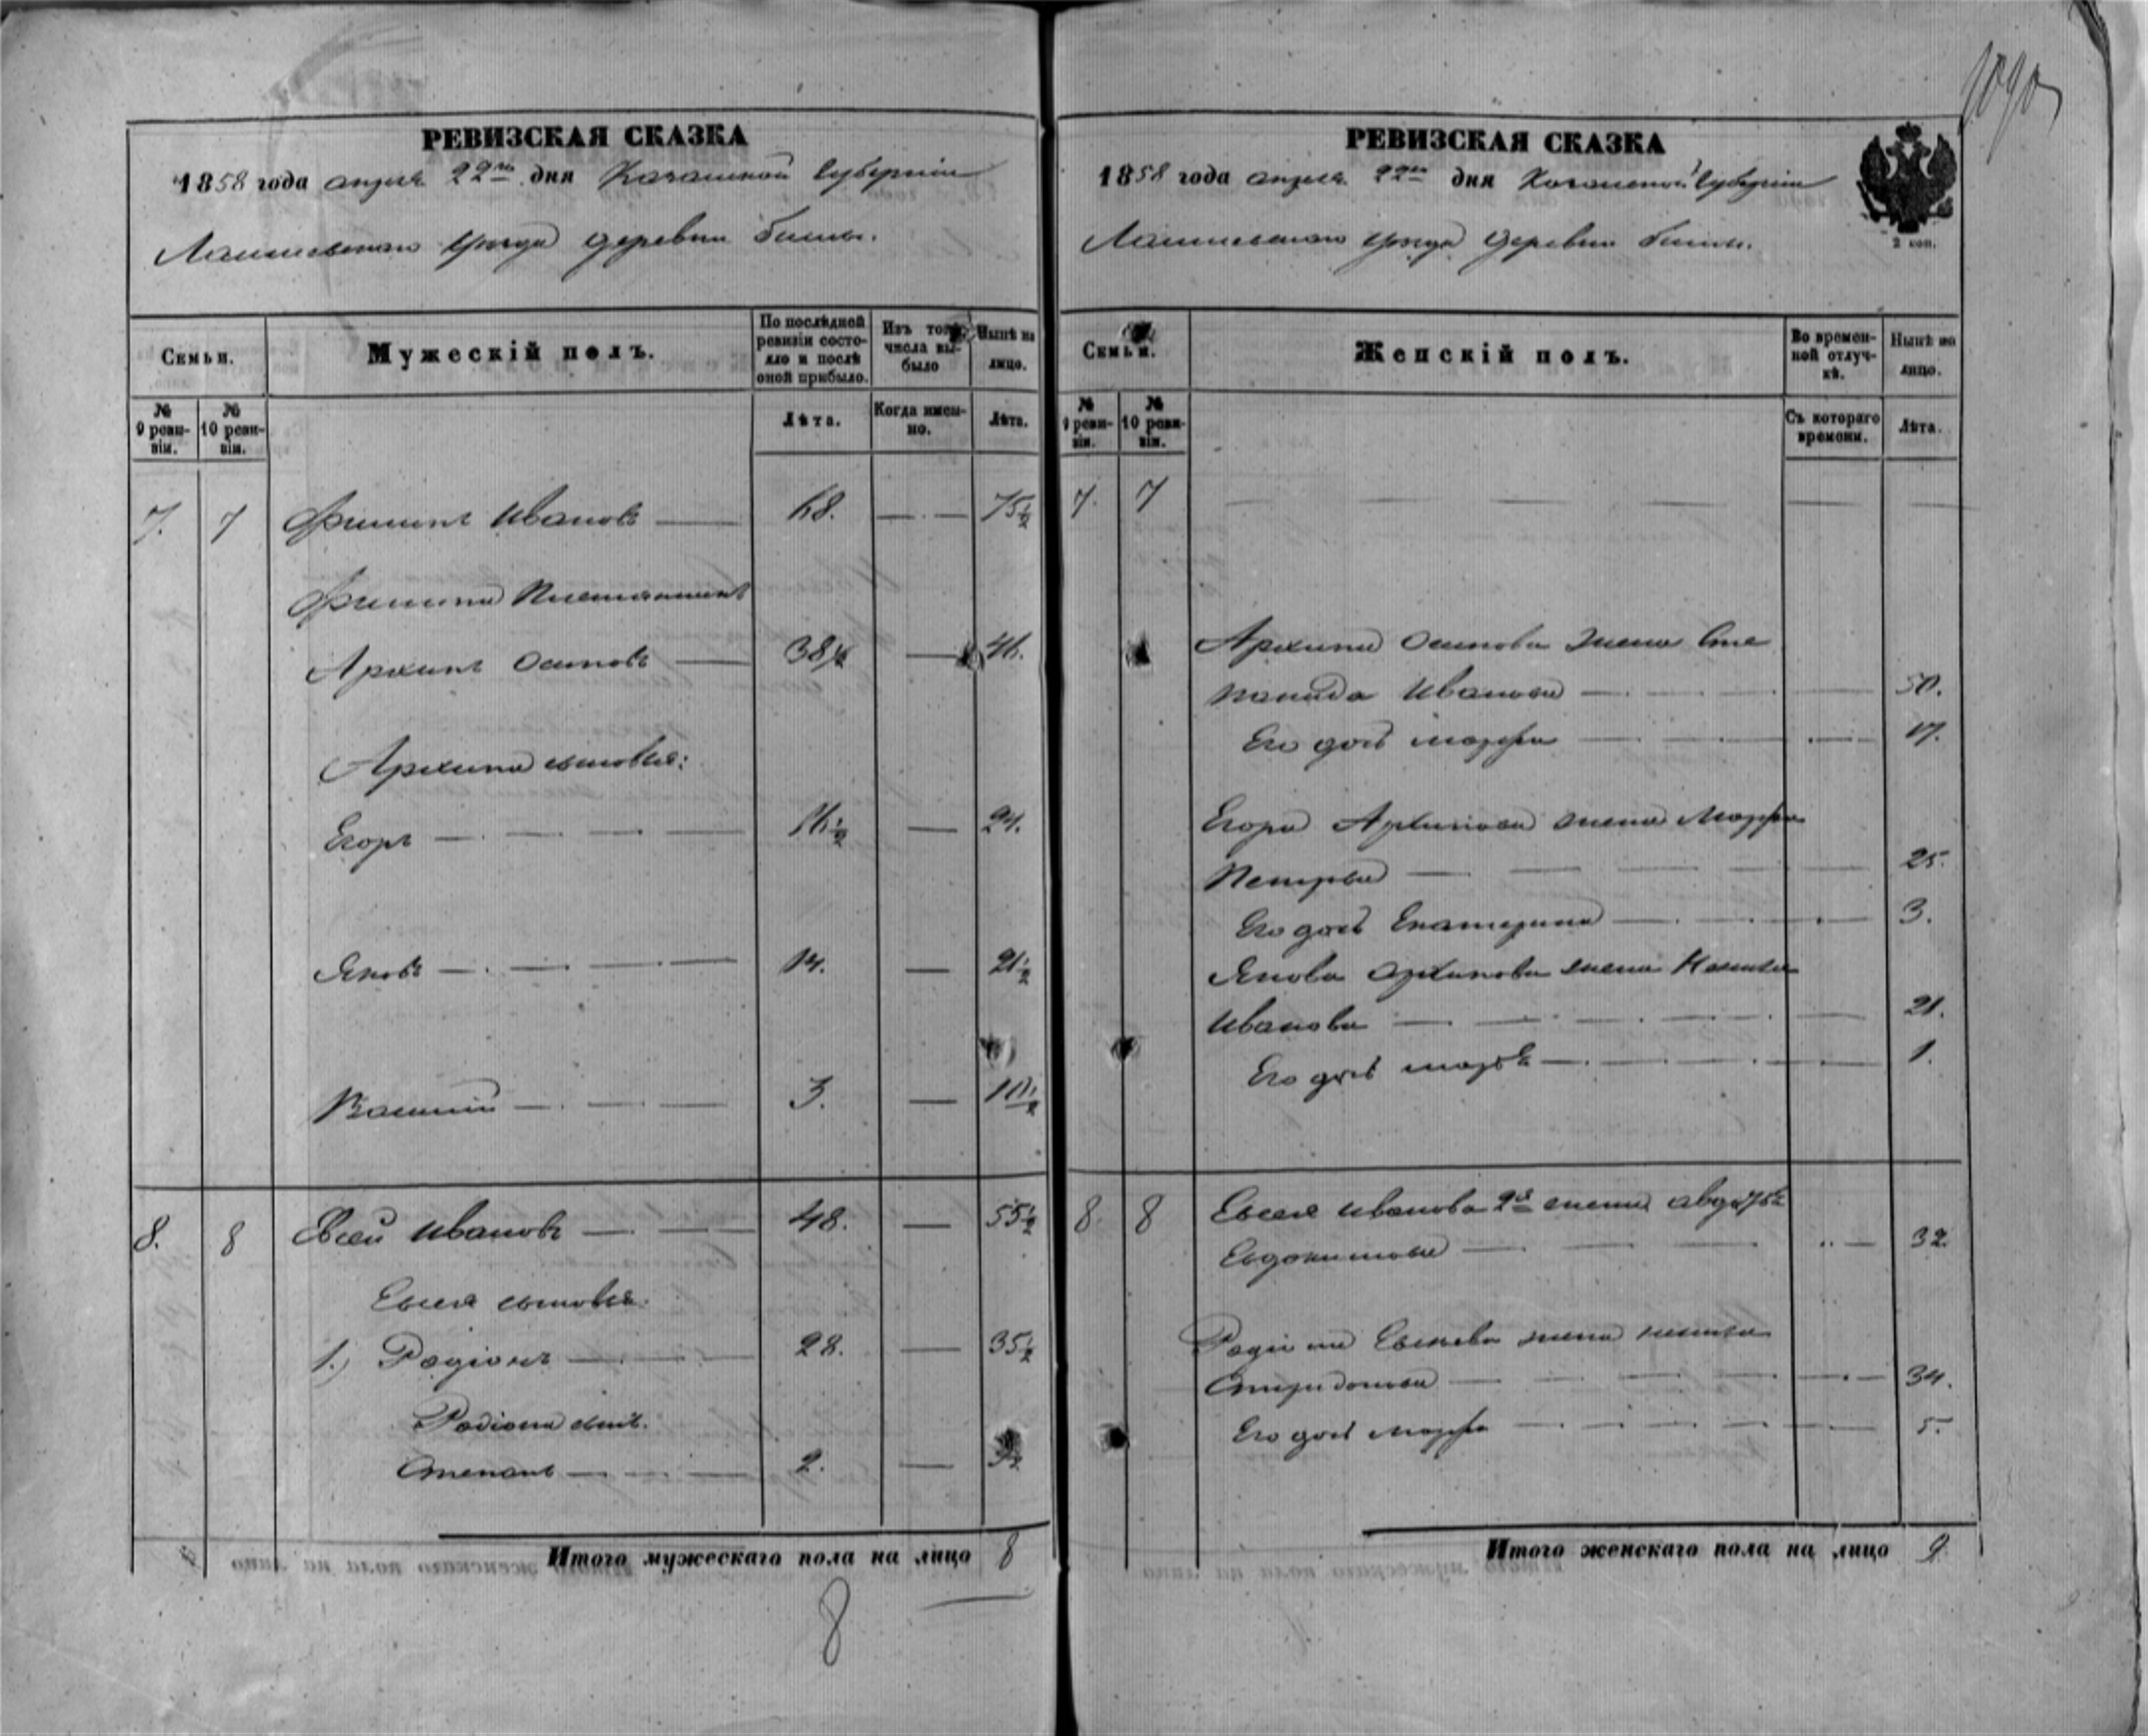 1090
РЕВИЗСКАЯ СКАЗКА
1858 года апреля 22го дня Казанской Губернии
Лаишевскаго уезда деревни
Семьи.
Мужескій полъ.
По послѣдней ревизіи состояло и послѣ оной прибыло.
Изъ того числа выбыло
Нынѣ на лицо.
№ 9 ревизіи.
№ 10 ревизіи.
Лѣта.
Когда именно.
Лѣта.
7. 7 Филипъ Ивановъ 68. 75½
Филипа
Архипъ Осиповъ 38½ 46.
Архипа сыновья:
Егоръ 16½ 24.
Яковъ 14. 21½
Василий 3. 10½
8. 8 Евсей Ивановъ 48. 55½
Евсея сыновья.
1.) Родіонъ 28. 35½
Родіона сынъ.
Степанъ 2. 9½
Итого мужескаго пола на лицо 8
8
РЕВИЗСКАЯ СКАЗКА
1858 года апреля 22го дня Казанской Губернии
Лаишевскаго уезда деревни
2 коп.
Семьи.
Женскій полъ.
Во временной отлучкѣ.
Нынѣ на лицо.
№ 9 ревизіи.
№ 10 ревизіи.
Съ котораго времени.
Лѣта.
7. 7
Архипа Осипова жена Сте
панида Иванова 50.
Его дочь Марфа 17.
Егора Архипова жена Марфа
Петрова 25.
Его дочь Екатерина 3.
Якова Архипова жена
Иванова 21.
Его дочь Марья 1.
8. 8 Евсея Иванова 2я жена Авдотья
Евдокимова 32
Родіона Евсеева жена
Спиридонова 34.
Его дочь Марфа 5.
Итого женскаго пола на лицо 9